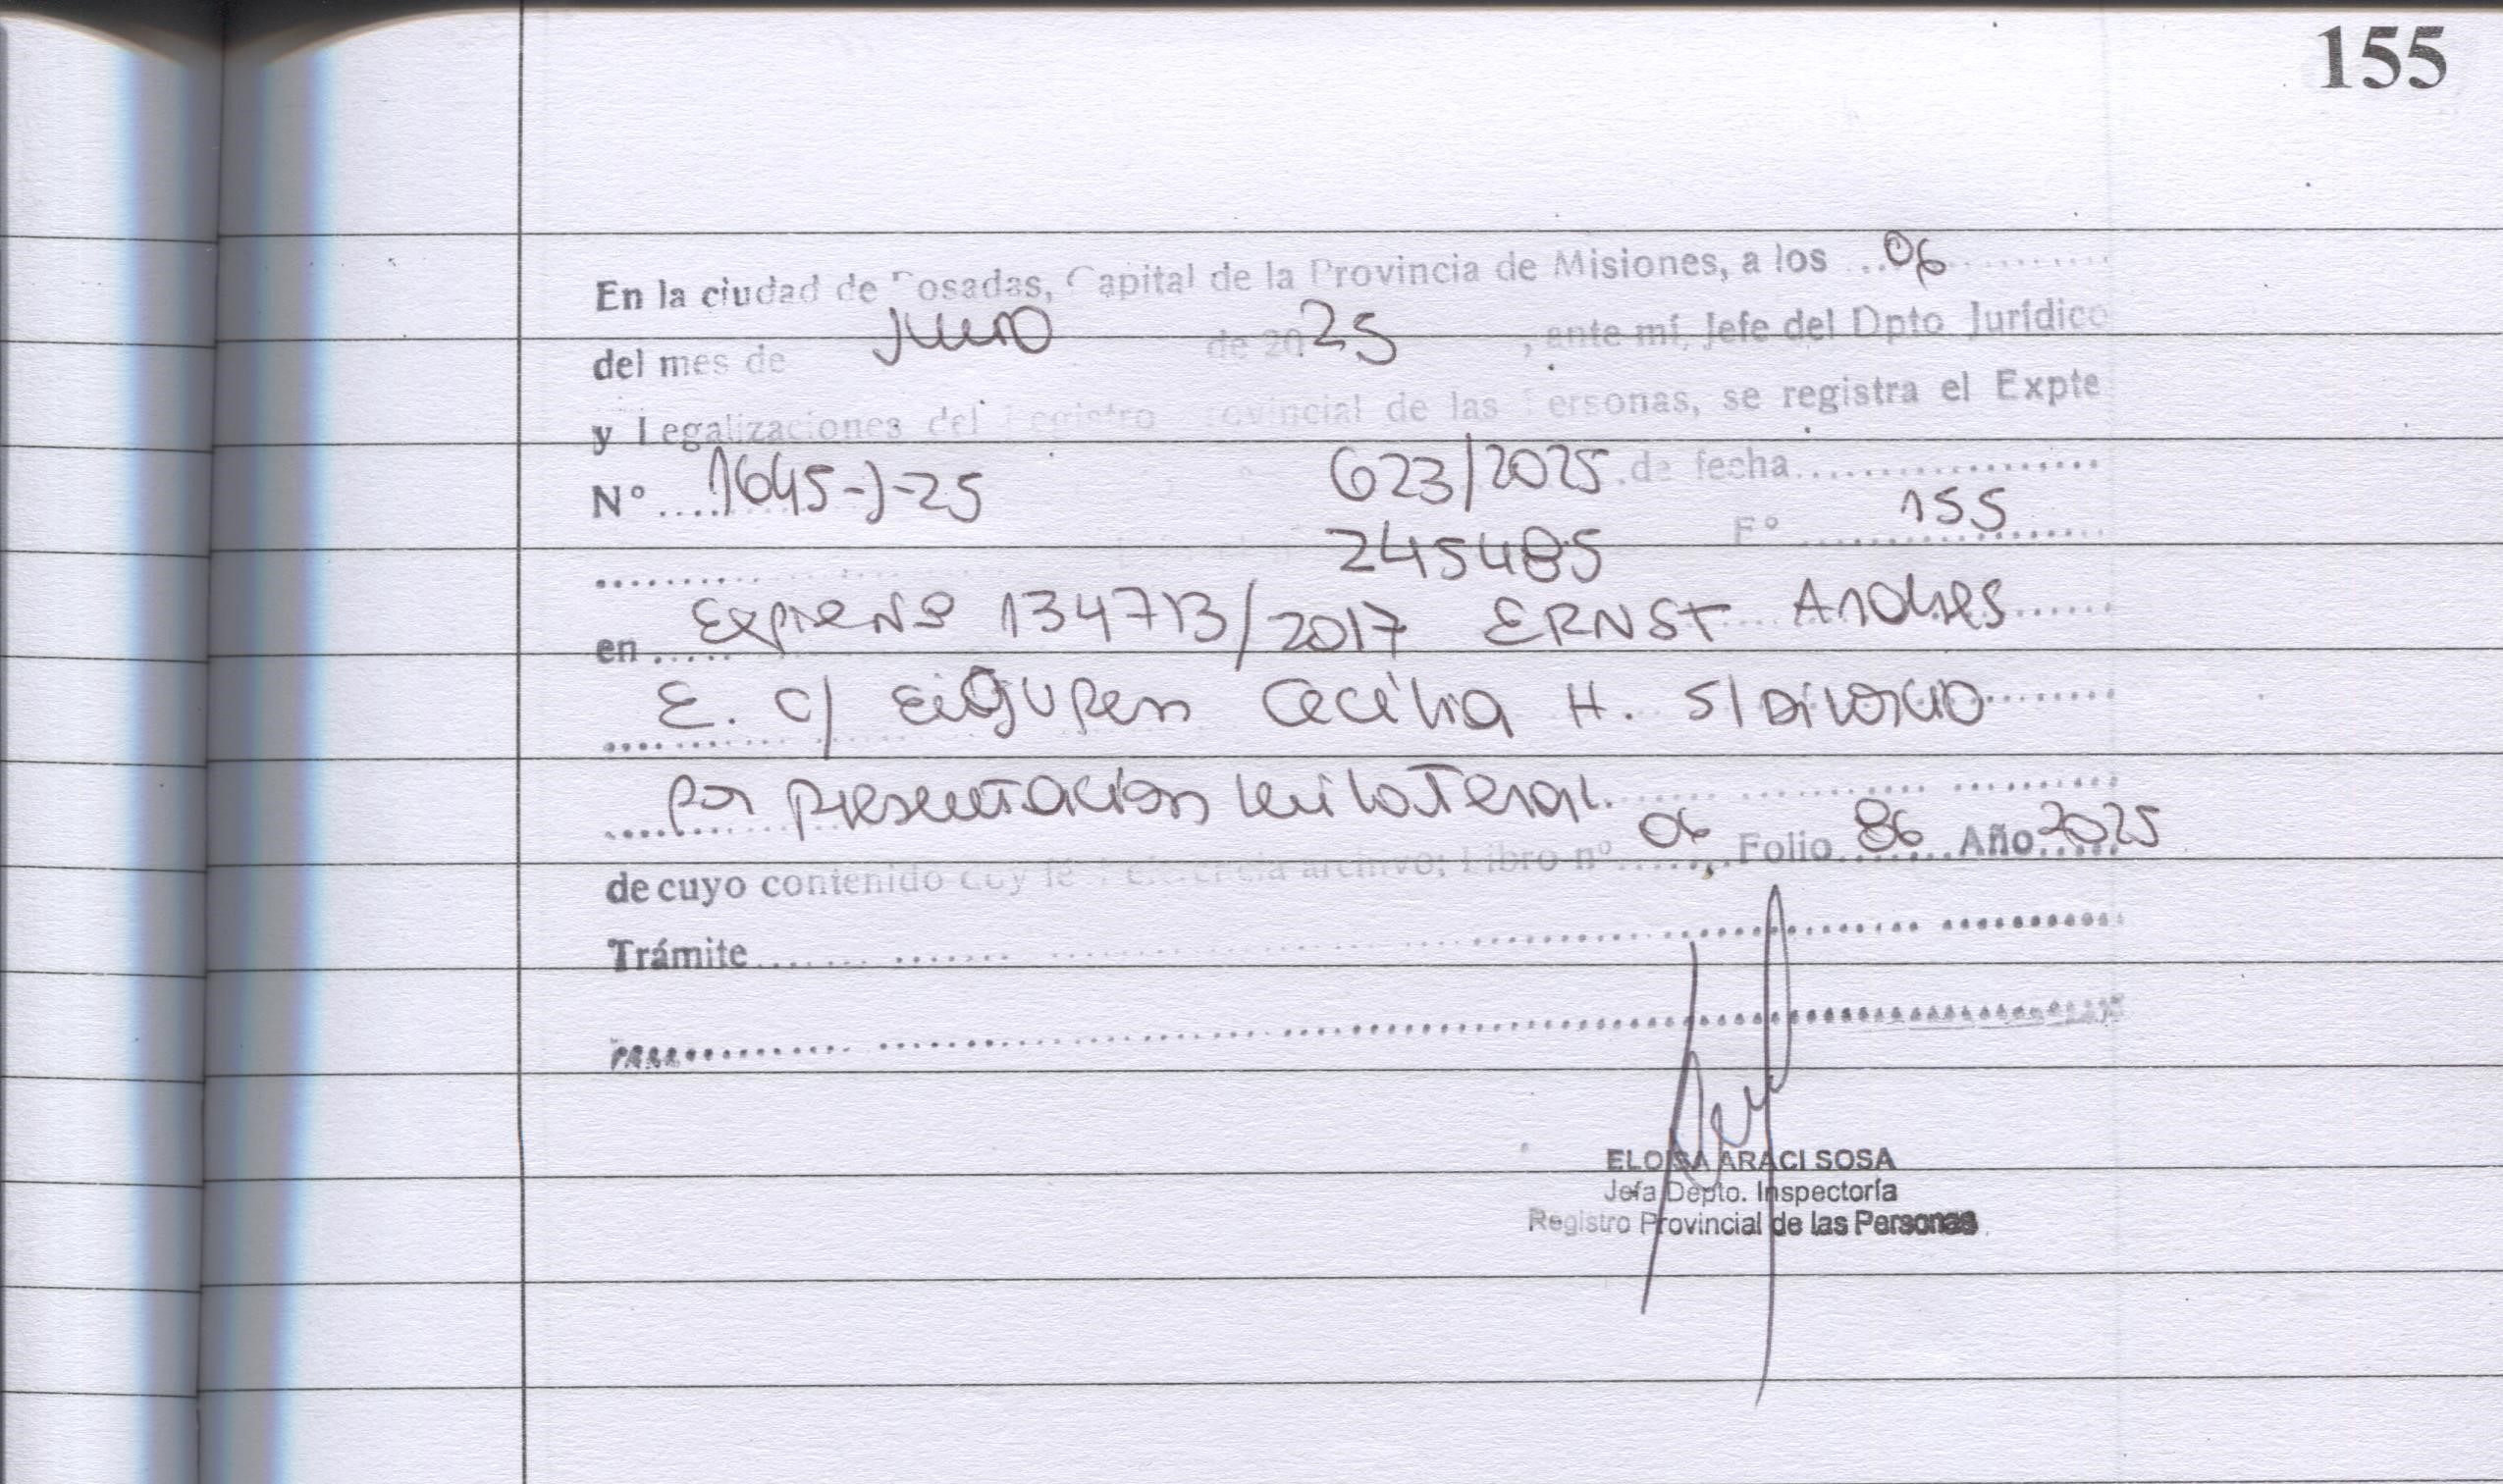 155
En la ciudad de Posadas, Capital de la Provincia de Misiones, a los ...06...........
del mes de Junio de 2025, ante mí, Jefe del Dpto. Jurídico
y Legalizaciones del Registro Provincial de las Personas, se registra el Expte
N° ....1645-J-25 623/2025 de fecha..................
245485 F° 155
en ..... Expte Nº 134713/2017 ERNST Andres
E. c/ Eiguren Cecilia H. s/ Divorcio
por presentación unilateral.
de cuyo contenido doy fé Referencia archivo; Libro nº 06 Folio 86 Año 2025
Trámite
ELOISA ARACI SOSA
Jefa Depto. Inspectoría
Registro Provincial de las Personas